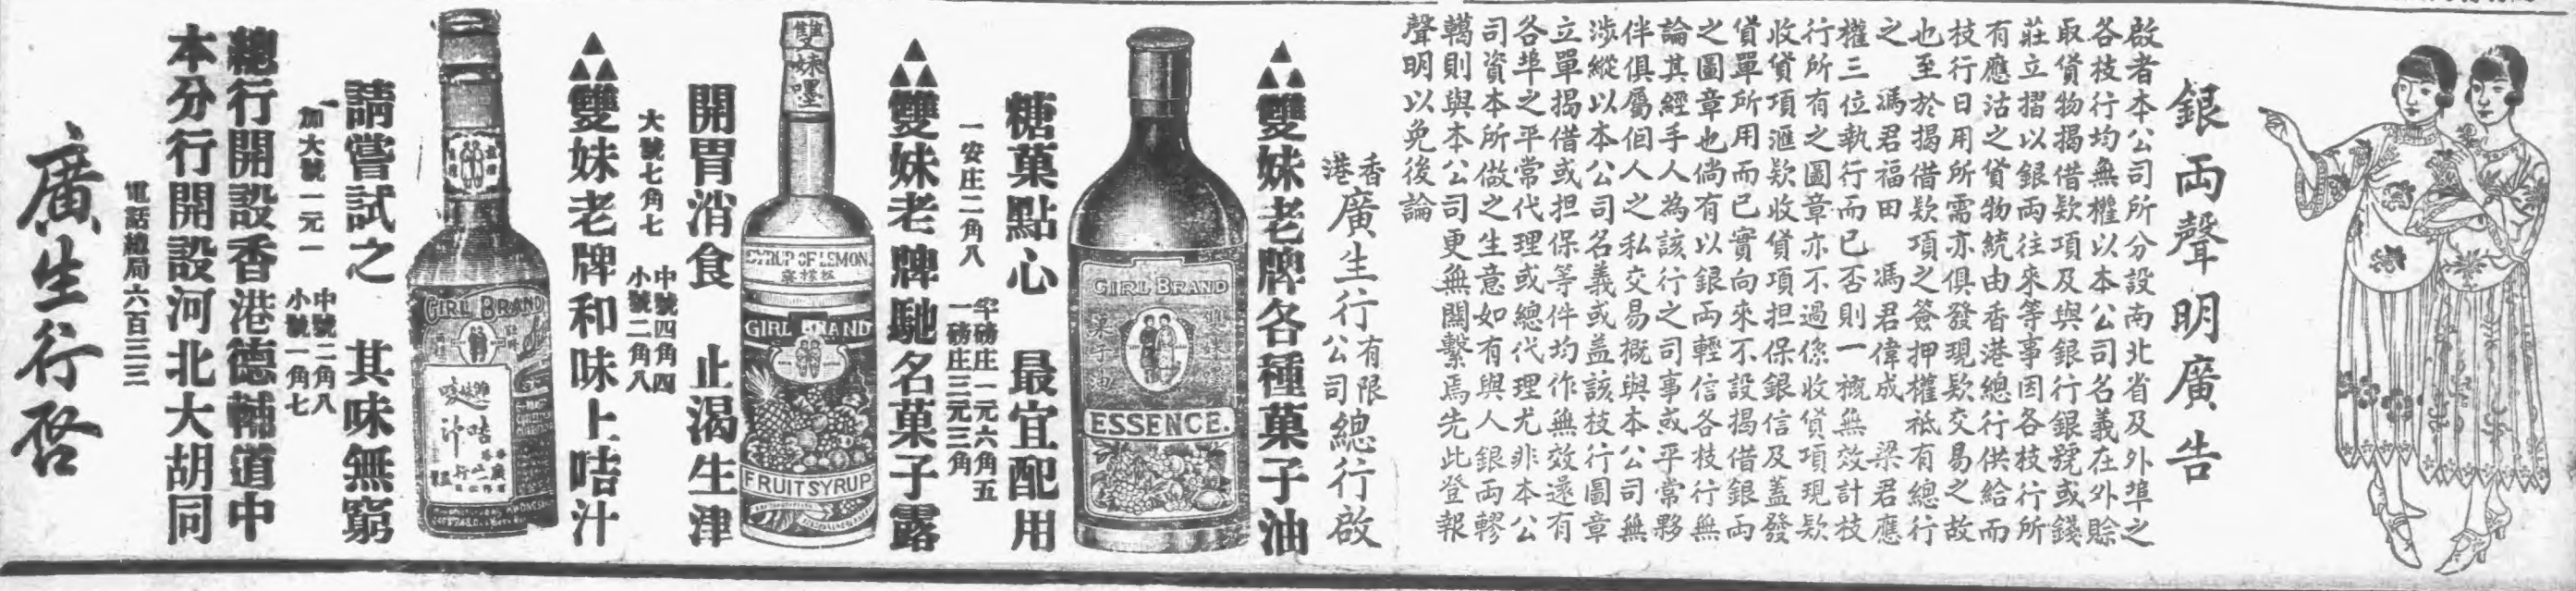 銀両聲明廣告
啟者本公司所分設南北省及外埠之
各枝行均無權以本公司名義在外賒
取貨物揭借欵項及與銀行銀號或錢
莊立摺以銀両往來等事因各枝行所
有應沽之貨物統由香港總行供給而
枝行日用所需亦俱發現欵交易之故
也至於揭借欵項之簽押權袛有總行
之 馮君福田 馮君偉成 梁君應
權三位執行而已否則一概無效計枝
行所有之圖章亦不過係收貨項現欵
收貨項滙欵收貨項担保銀信及蓋發
貨單所用而已實向來不設揭借銀両
之圖章也倘有以銀両輕信各枝行無
論其經手人為該行之司事或平常夥
伴俱屬個人之私交易概與本公司無
涉縱以本公司名義或盖該枝行圖章
立單揭借或担保等件均作無效遠有
各埠之平常代理或總代理尤非本公
司資本所做之生意如有與人銀両轇
轕則與本公司更無關繫焉先此登報
聲明以免後論
香港廣生行有限公司總行啟
雙妹老牌各種菓子油
GIRL BRAND
雙妹嘜
菓子油
ESSENCE.
糖菓點心 最宜配用
一安庄二角八
半磅庄一元六角五
一磅庄三元三角
雙妹老牌馳名菓子露
雙妹嚜
SYRUP OF LEMON
檸檬
GIRL BRAND
FRUIT SYRUP
開胃消食 止渴生津
大號七角七
中號四角四
小號二角八
雙妹老牌和味上咭汁
GIRL BRAND
咭汁
請嘗試之 其味無窮
加大號一元一
中號二角八
小號一角七
總行開設香港德輔道中
本分行開設河北大胡同
電話總局六百三三
廣生行啓